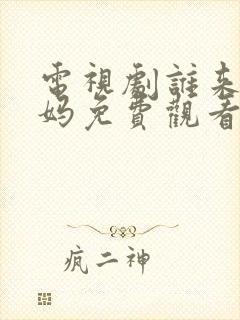 電視劇誰來
媽免費觀看
疯二神